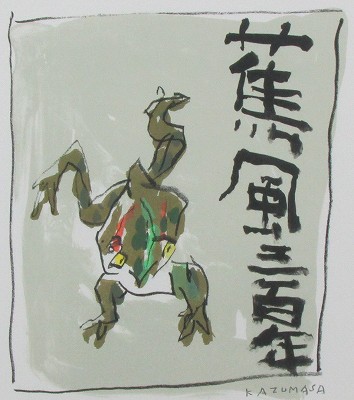 蕉風三百年
KAZUMASA